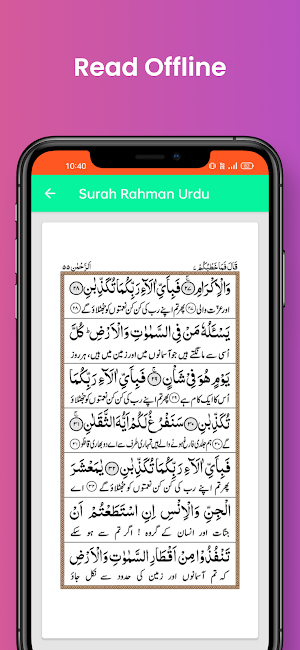 Read Offline
10:40
Surah Rahman Urdu
قَالَ فَمَا خَطْبُكُمْ ٢٧
اَلرَّحْمٰن ٥٥
وَالْاِكْرَامِ ﴿٢٧﴾ فَبِاَيِّ اٰلَآءِ رَبِّكُمَا تُكَذِّبٰنِ ﴿٢٨﴾
اور عزت والی ﴿٢٧﴾ پھر تم اپنے رب کی کن کن نعمتوں کو جھٹلاؤ گے ﴿٢٨﴾
يَسْـَٔلُهٗ مَنْ فِي السَّمٰوٰتِ وَالْاَرْضِ ؕ كُلَّ
اُسی سے مانگتے ہیں جو آسمانوں میں اور زمین میں ہیں، ہر روز
يَوْمٍ هُوَ فِيْ شَاْنٍ ﴿٢٩﴾ فَبِاَيِّ اٰلَآءِ رَبِّكُمَا
اُس کا ایک کام ہے ﴿٢٩﴾ پھر تم اپنے رب کی کن کن نعمتوں کو جھٹلاؤ
تُكَذِّبٰنِ ﴿٣٠﴾ سَنَفْرُغُ لَكُمْ اَيُّهَ الثَّقَلٰنِ ﴿٣١﴾
گے ﴿٣٠﴾ ہم جلدی فارغ ہونے والے ہیں تمہاری طرف سے اے دو بھاری قافلو ﴿٣١﴾
فَبِاَيِّ اٰلَآءِ رَبِّكُمَا تُكَذِّبٰنِ ﴿٣٢﴾ يٰمَعْشَرَ
پھر تم اپنے رب کی کن کن نعمتوں کو جھٹلاؤ گے ﴿٣٢﴾ اے
الْجِنِّ وَالْاِنْسِ اِنِ اسْتَطَعْتُمْ اَنْ
جنات اور انسان کے گروہ ! اگر تم سے ہو سکے
تَنْفُذُوْا مِنْ اَقْطَارِ السَّمٰوٰتِ وَالْاَرْضِ
کہ تم آسمانوں اور زمین کی حدود سے نکل جاؤ